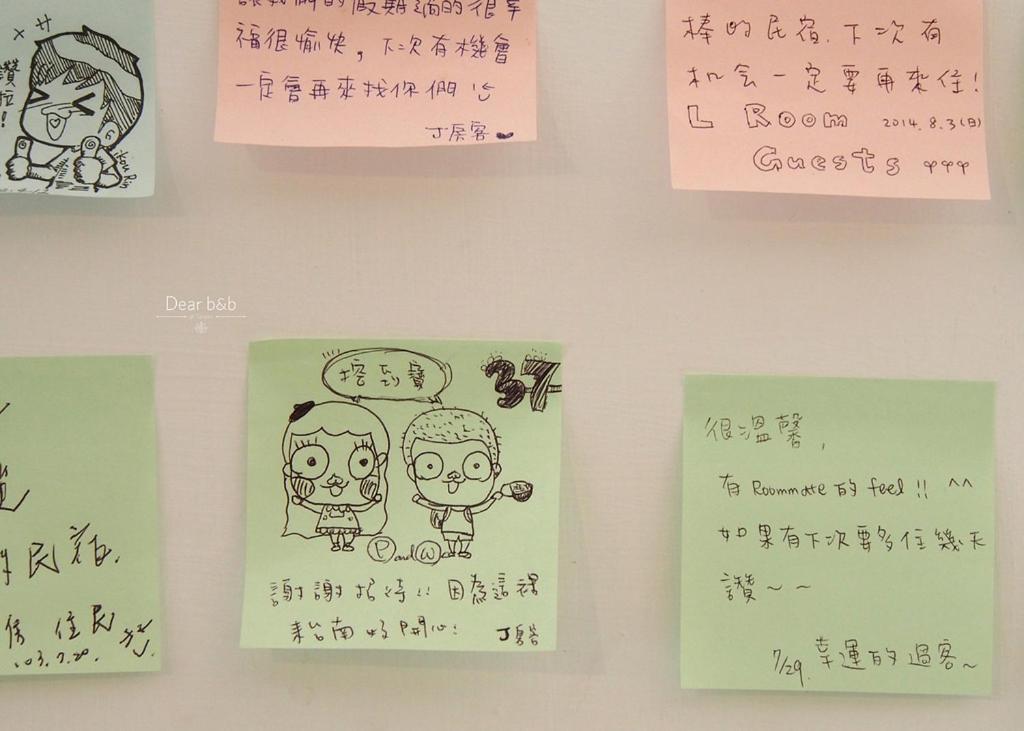 讚啦!
讓我們的假期過的很幸
福很愉快，下次有機會
一定會再來找你們
丁房客
棒的民宿.下次有
机会一定要再來住!
L Room 2014.8.3(日)
Guests
Dear b&b
民宿.
住民
103.7.20.
挖到寶
37
P and W
謝謝招待!! 因為這裡
來台南好開心!
很溫馨,
有Roommate的feel!! ^^
如果有下次要多住幾天
讚~~
7/29. 幸運的過客~